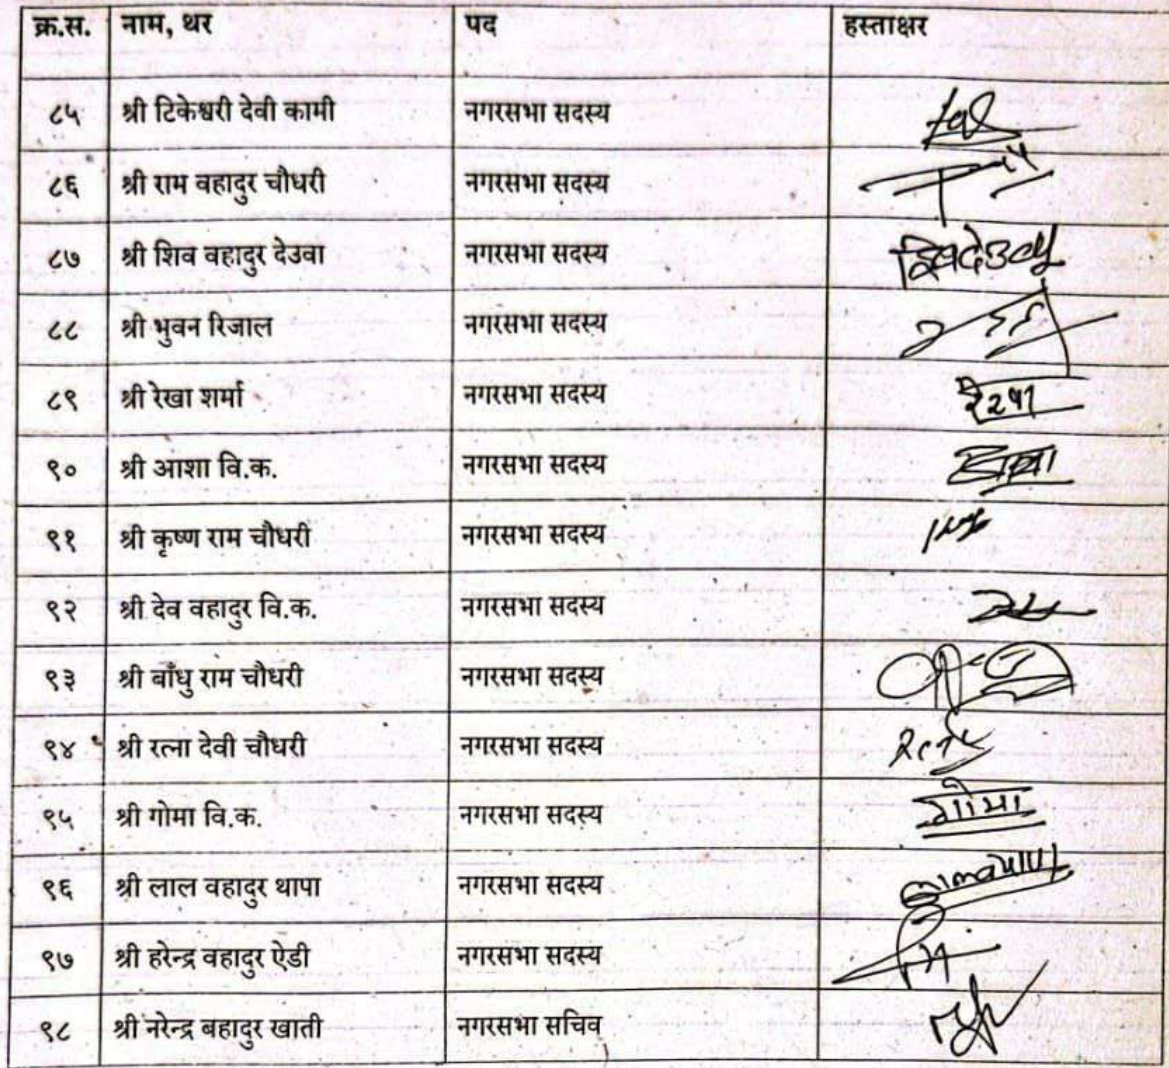 क्र.स. नाम, थर पद हस्ताक्षर
८५ श्री टिकेश्वरी देवी कामी नगरसभा सदस्य
८६ श्री राम वहादुर चौधरी नगरसभा सदस्य
८७ श्री शिव वहादुर देउवा नगरसभा सदस्य
८८ श्री भुवन रिजाल नगरसभा सदस्य
८९ श्री रेखा शर्मा नगरसभा सदस्य
९० श्री आशा वि.क. नगरसभा सदस्य
९१ श्री कृष्ण राम चौधरी नगरसभा सदस्य
९२ श्री देव वहादुर वि.क. नगरसभा सदस्य
९३ श्री बाँधु राम चौधरी नगरसभा सदस्य
९४ श्री रत्ना देवी चौधरी नगरसभा सदस्य
९५ श्री गोमा वि.क. नगरसभा सदस्य गोमा
९६ श्री लाल वहादुर थापा नगरसभा सदस्य
९७ श्री हरेन्द्र वहादुर ऐडी नगरसभा सदस्य
९८ श्री नरेन्द्र बहादुर खाती नगरसभा सचिव